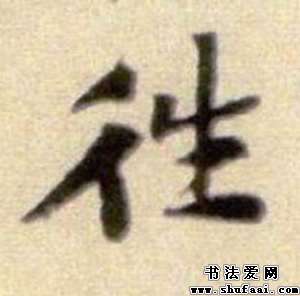 徃
书法爱网
www.shufaai.com